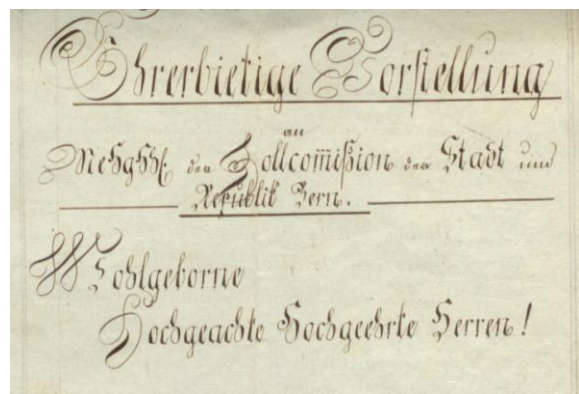 Ehrerbietige Vorstellung
an
MeHgHH. der Zollcom̄ißion der Stadt und
Republik Bern.
Wohlgeborne
Hochgeachte Hochgeehrte Herren!